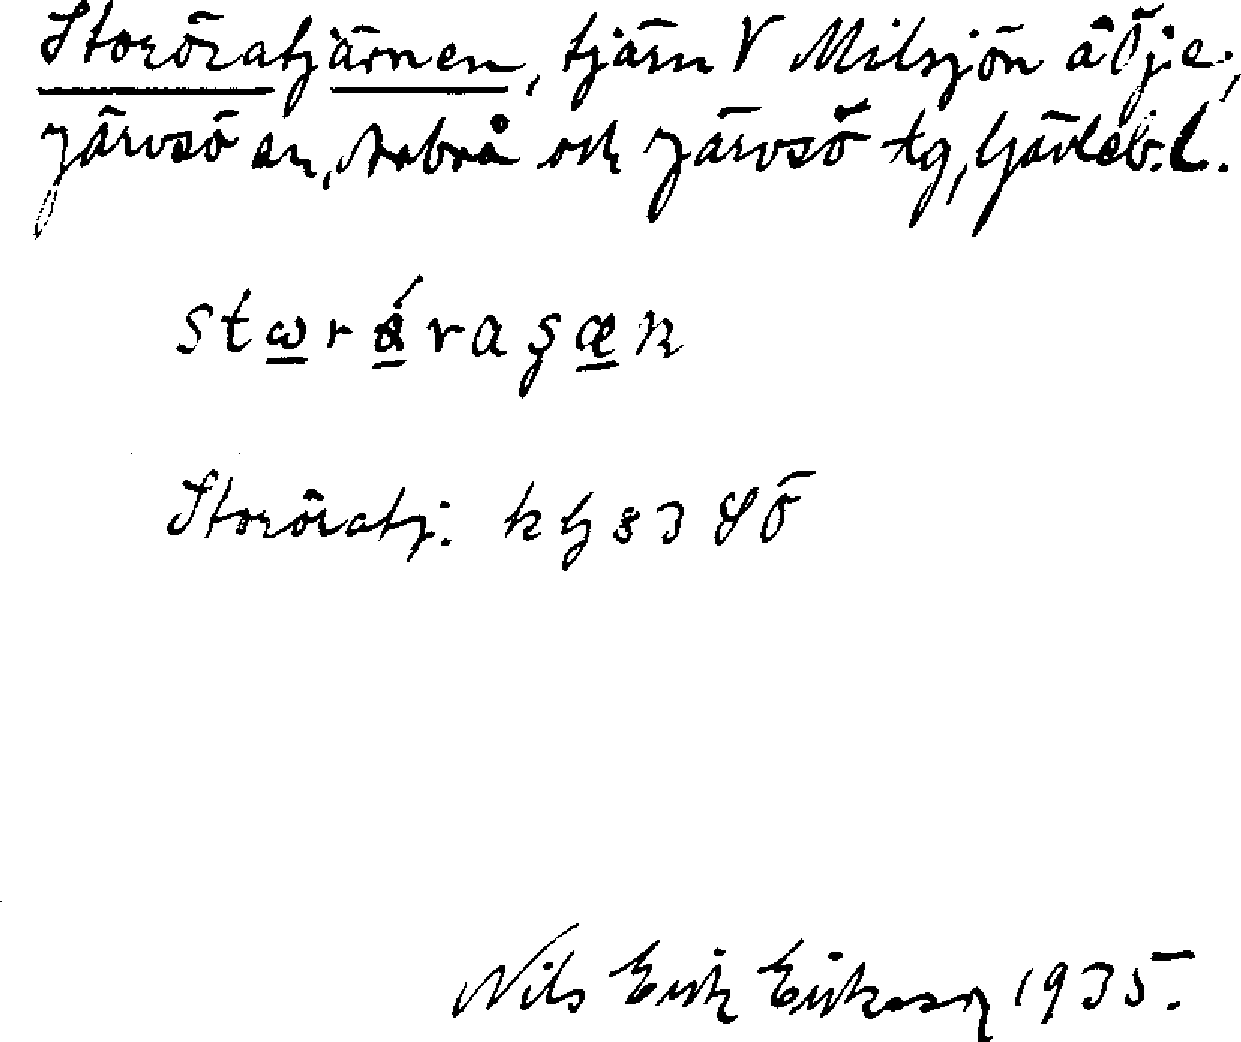 Storöratjärnen, tjärn V Milsjön å Öje,
Järvsö sn, Arbrå och Järvsö tg, Gävleb. l.
stωrǻraşæn
Storöratj. kg 83 SÖ
Nils Erik Eriksson 1935.